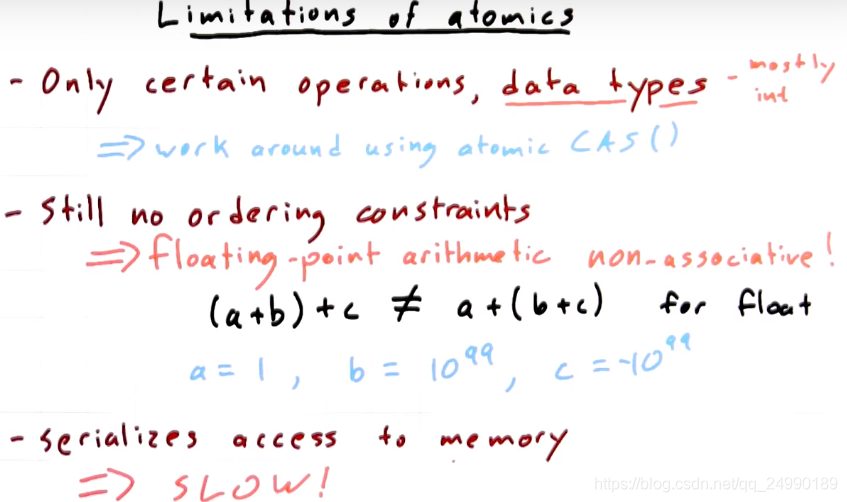 Limitations of atomics
- Only certain operations, data types - mostly int
⇒ work around using atomic CAS()
- Still no ordering constraints
⇒ floating-point arithmetic non-associative!
(a+b)+c ≠ a+(b+c) for float
a = 1, b = 10^99, c = -10^99
- serializes access to memory
⇒ SLOW!
https://blog.csdn.net/qq_24990189